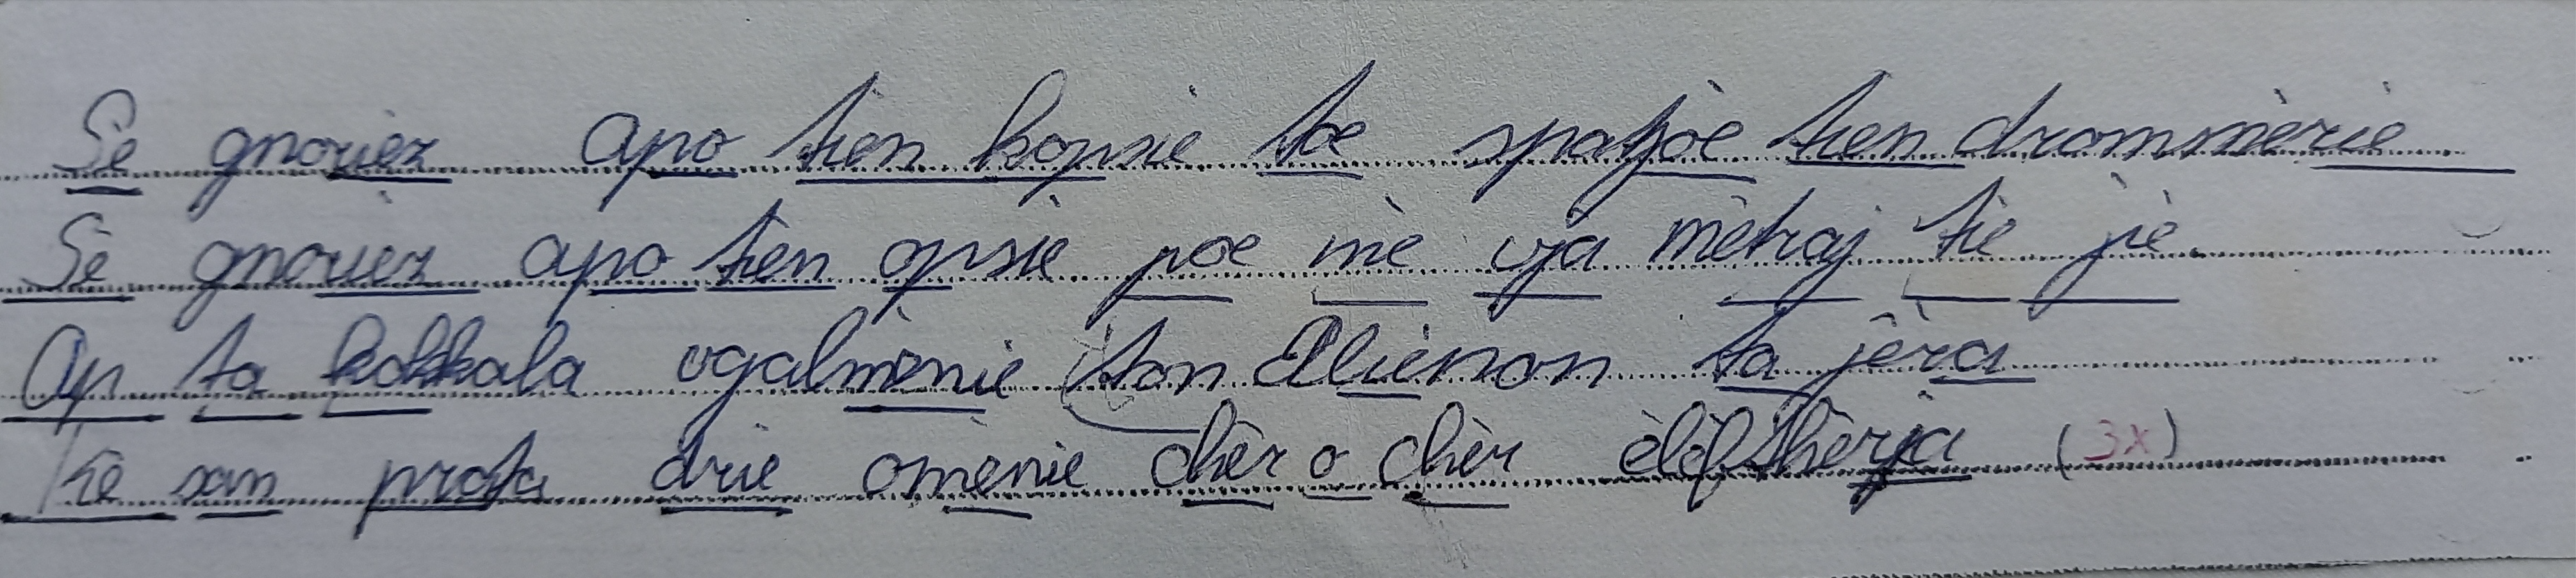 Sè gnoriez apo tien kopsie toe spatjoe tien drommèrie
Sè gnoriez apo tien opsie poe mè vja mètraj tie jè.
Ap ta kokkala vgalmènie ton Elliènon ta jèra
Kè san prota drie omènie chèr o chèr èlèftherja (3x)